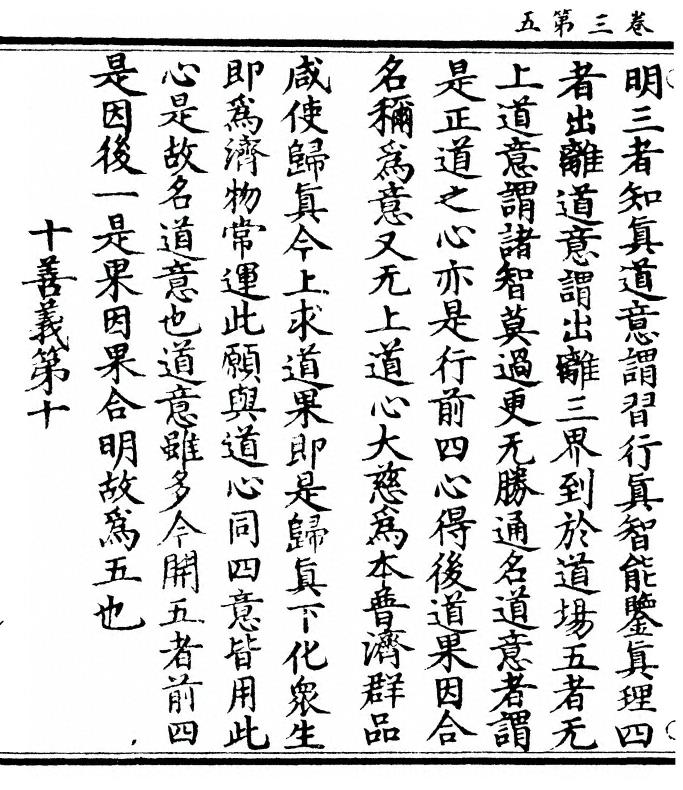 卷三第五
明三者知真道意謂習行真智能鑒真理四
者出離道意謂出離三界到於道場五者无
上道意謂諸智莫過更无勝通名道意者謂
是正道之心亦是行前四心得後道果因合
名稱為意又无上道心大慈為本普濟群品
咸使歸真今上求道果即是歸真下化眾生
即為濟物常運此願與道心同四意皆用此
心是故名道意也道意雖多今開五者前四
是因後一是果因果合明故為五也
十善義第十